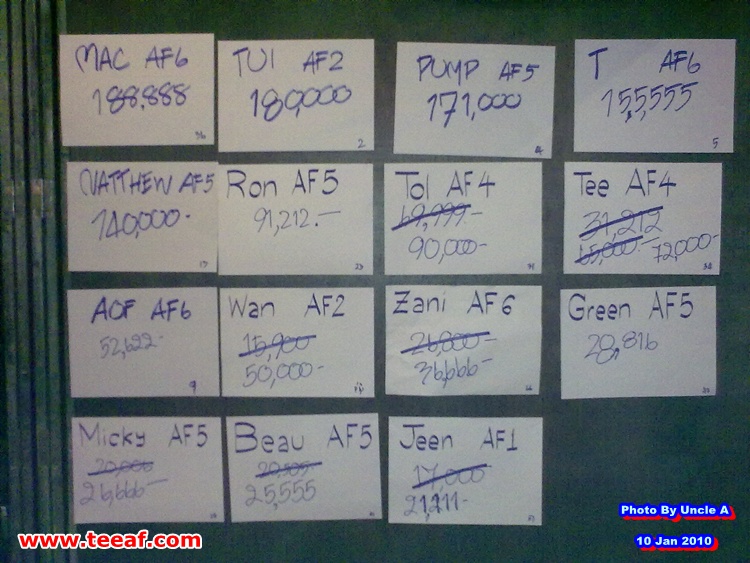 MAC AF6
188,888
36
TUI AF2
180,000
2
PUMP AF5
171,000
T AF6
155,555
5
NATTHEW AF5
140,000.-
Ron AF5
91,212.-
Tol AF4
69,999-
90,000-
Tee AF4
31,212
65,000- 72,000-
AOF AF6
52,622-
9
Wan AF2
15,900
50,000-
Zani AF6
26,000-
36,666-
Green AF5
28,816
Micky AF5
20,006
26,666-
Beau AF5
20,505-
25,555
Jeen AF1
17,000
21,211-
Photo By Uncle A
www.teeaf.com
10 Jan 2010